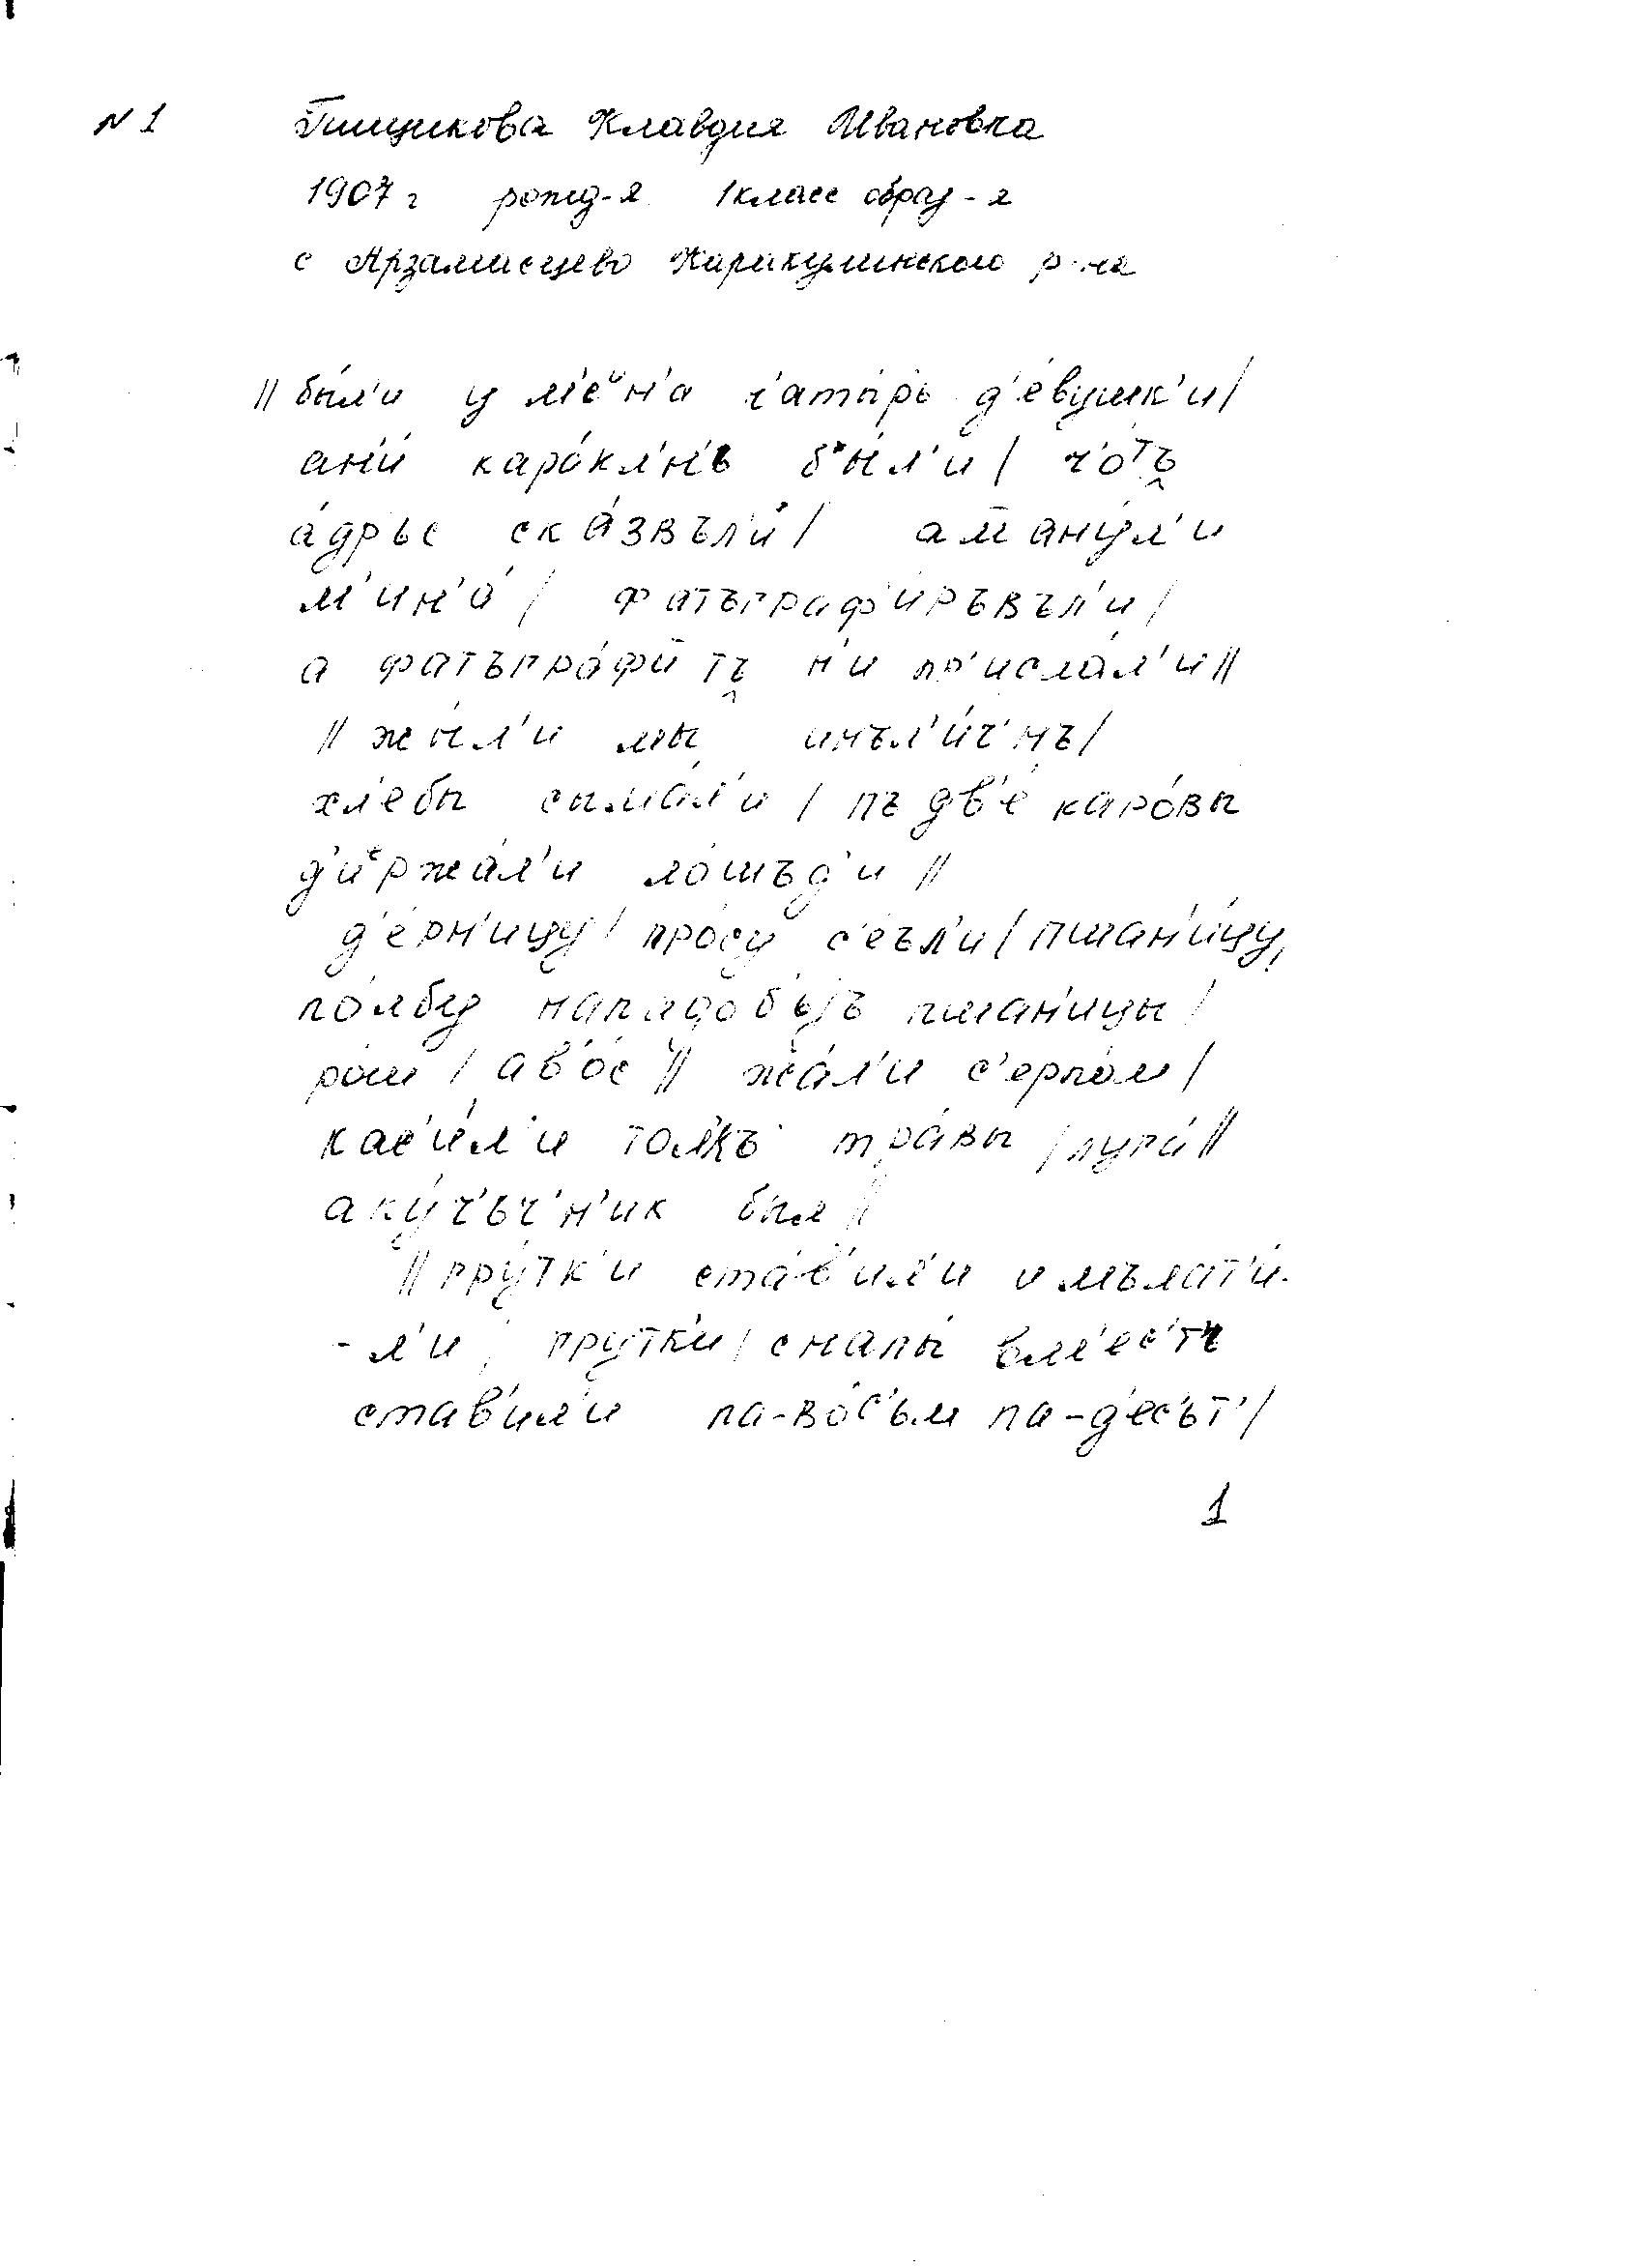 N 1 Клавдия Ивановна
1907 г рожд-я 1 класс образ-я
с Арзамасцево Каракулинского р-на
|| бы́л'и у м'еᶦн'а́ ч'аты́рь д'е́вушк'и /
ан'и́ каро́кл'н'ь бы́л'и / ч'о́тъ
а́др'ьс ска́звъл'и / аманýл'и
м'ин'а́ / фатъграф'и́ръвъл'и /
а фатъгра́ф'ий тъ н'и пр'исла́л'и ||
|| жы́л'и мы
хл'е́бы сыма́л'и / пъ дв'е́ каро́вы
д'иᵉржа́л'и ло́шъд'и ||
д'е́рн'ицу / про́су с'е́ъл'и / пшан'и́цу,
по́лбу нападо́б'ьjъ пшан'и́цы /
рош / ав'о́с || жа́л'и с'ерпо́м /
кас'и́л'и то́л'къ тра́вы / луга́ ||
аку́ч'ьч'н'ик был ||
|| пру́тк'и ста́в'ил'и и мълат'и́-
-л'и / пру́тк'и / снапы́ вм'е́с'тъ
ста́в'ил'и па-во́с'ьм па-д'е́с'ът' /
1